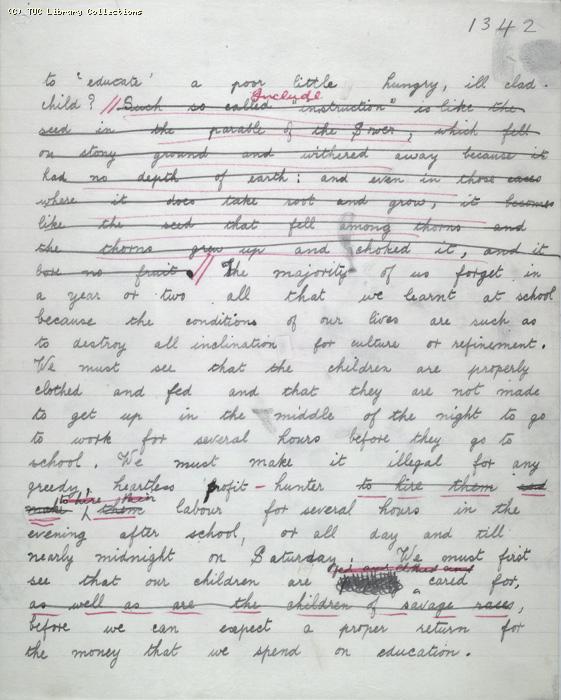 (C) TUC Library Collections
1342
to 'educate' a poor little hungry, ill clad
child? // Such so called instruction" is like the
Include
seed in the parable of the Sower, which fell
on stony ground and withered away because it
had no depth of earth: and even in those cases
where it does take root and grow, it becomes
like the seed that fell among thorns and
the thorns grew up and choked it, and it
bore no fruit. // The majority of us forget in
a year or two all that we learnt at school
because the conditions of our lives are such as
to destroy all inclination for culture or refinement.
We must see that the children are properly
clothed and fed and that they are not made
to get up in the middle of the night to go
to work for several hours before they go to
school. We must make it illegal for any
greedy, heartless profit-hunter to hire them and
to hire their
make them labour for several hours in the
evening after school, or all day and till
nearly midnight on Saturday. We must first
fed and clothed and
see that our children are cared for,
as well as are the children of savage races,
before we can expect a proper return for
the money that we spend on education.